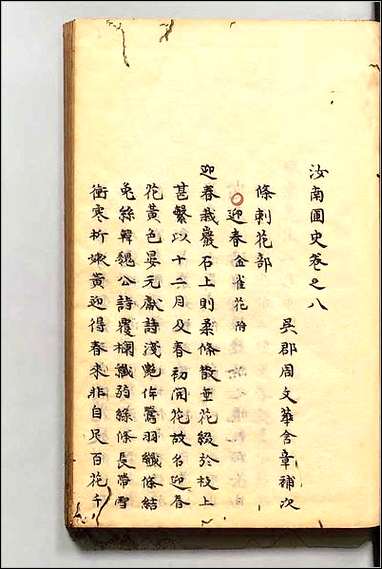 汝南圃史卷之八
吳郡周文華含章補次
條刺花部
迎春金雀花附
迎春栽巖石上則柔條散垂花綴於枝上
甚繁以十二月及春初開花故名迎春
花黃色晏元獻詩淺艷侔鶯羽纖條結
兔絲韓魏公詩覆欄纖弱綠條長帶雪
衝寒折嫩黃迎得春來非自足百花千